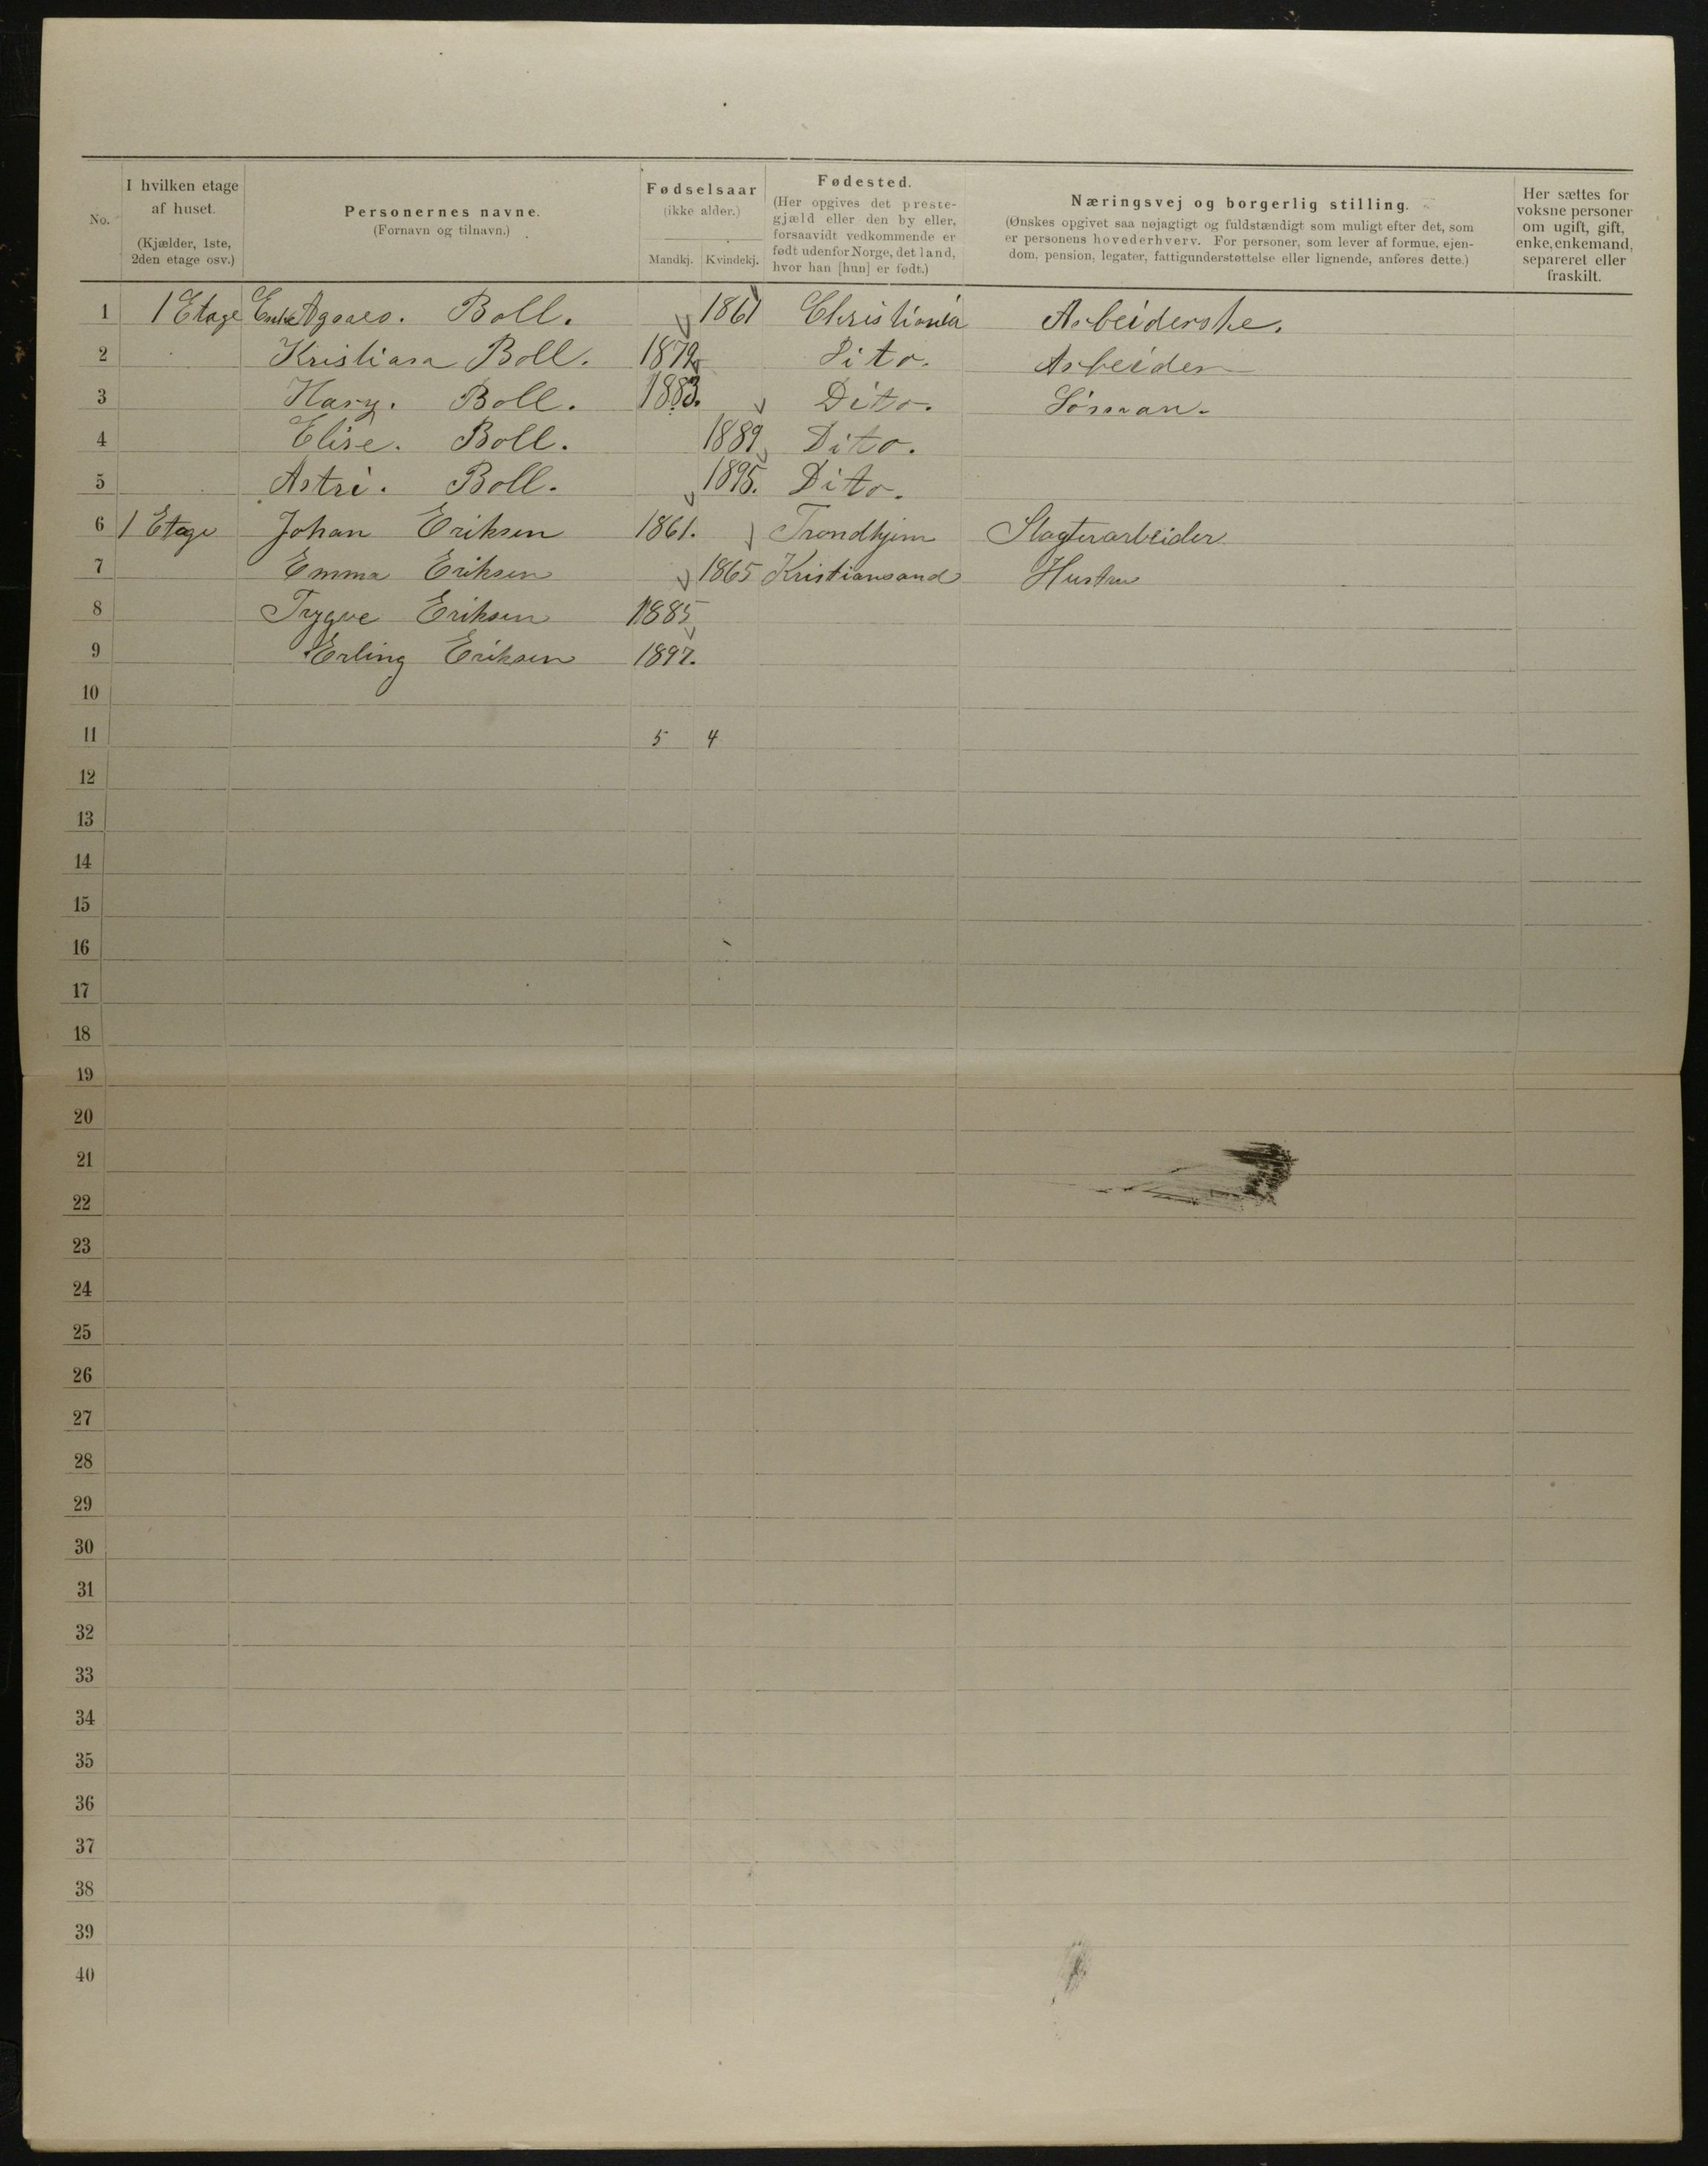 No.
I hvilken etage af huset. (Kjælder, 1ste, 2den etage osv.)
Personernes navne. (Fornavn og tilnavn.)
Fødselsaar (ikke alder.) Mandkj. Kvindekj.
Fødested. (Her opgives det prestegjæld eller den by eller, forsaavidt vedkommende er født udenfor Norge, det land, hvor han [hun] er født.)
Næringsvej og borgerlig stilling. (Ønskes opgivet saa nøjagtigt og fuldstændigt som muligt efter det, som er personens hovederhverv. For personer, som lever af formue, ejendom, pension, legater, fattigunderstøttelse eller lignende, anføres dette.)
Her sættes for voksne personer om ugift, gift, enke, enkemand, separeret eller fraskilt.
1 1 Etage Enke Agnes. Boll. 1861 Christiania Arbeiderske.
2 Kristian Boll. 1879 Dito. Arbeider
3 Hary. Boll. 1883. Dito.
4 Elise. Boll. 1889 Dito.
5 Astri. Boll. 1895. Dito.
6 1 Etage Johan Eriksen 1861. Trondhjem Slagterarbeider
7 Emma Eriksen 1865 Kristiansand Hustru
8 Trygve Eriksen 1885
9 Erling Eriksen 1897.
10
11 5 4
12
13
14
15
16
17
18
19
20
21
22
23
24
25
26
27
28
29
30
31
32
33
34
35
36
37
38
39
40